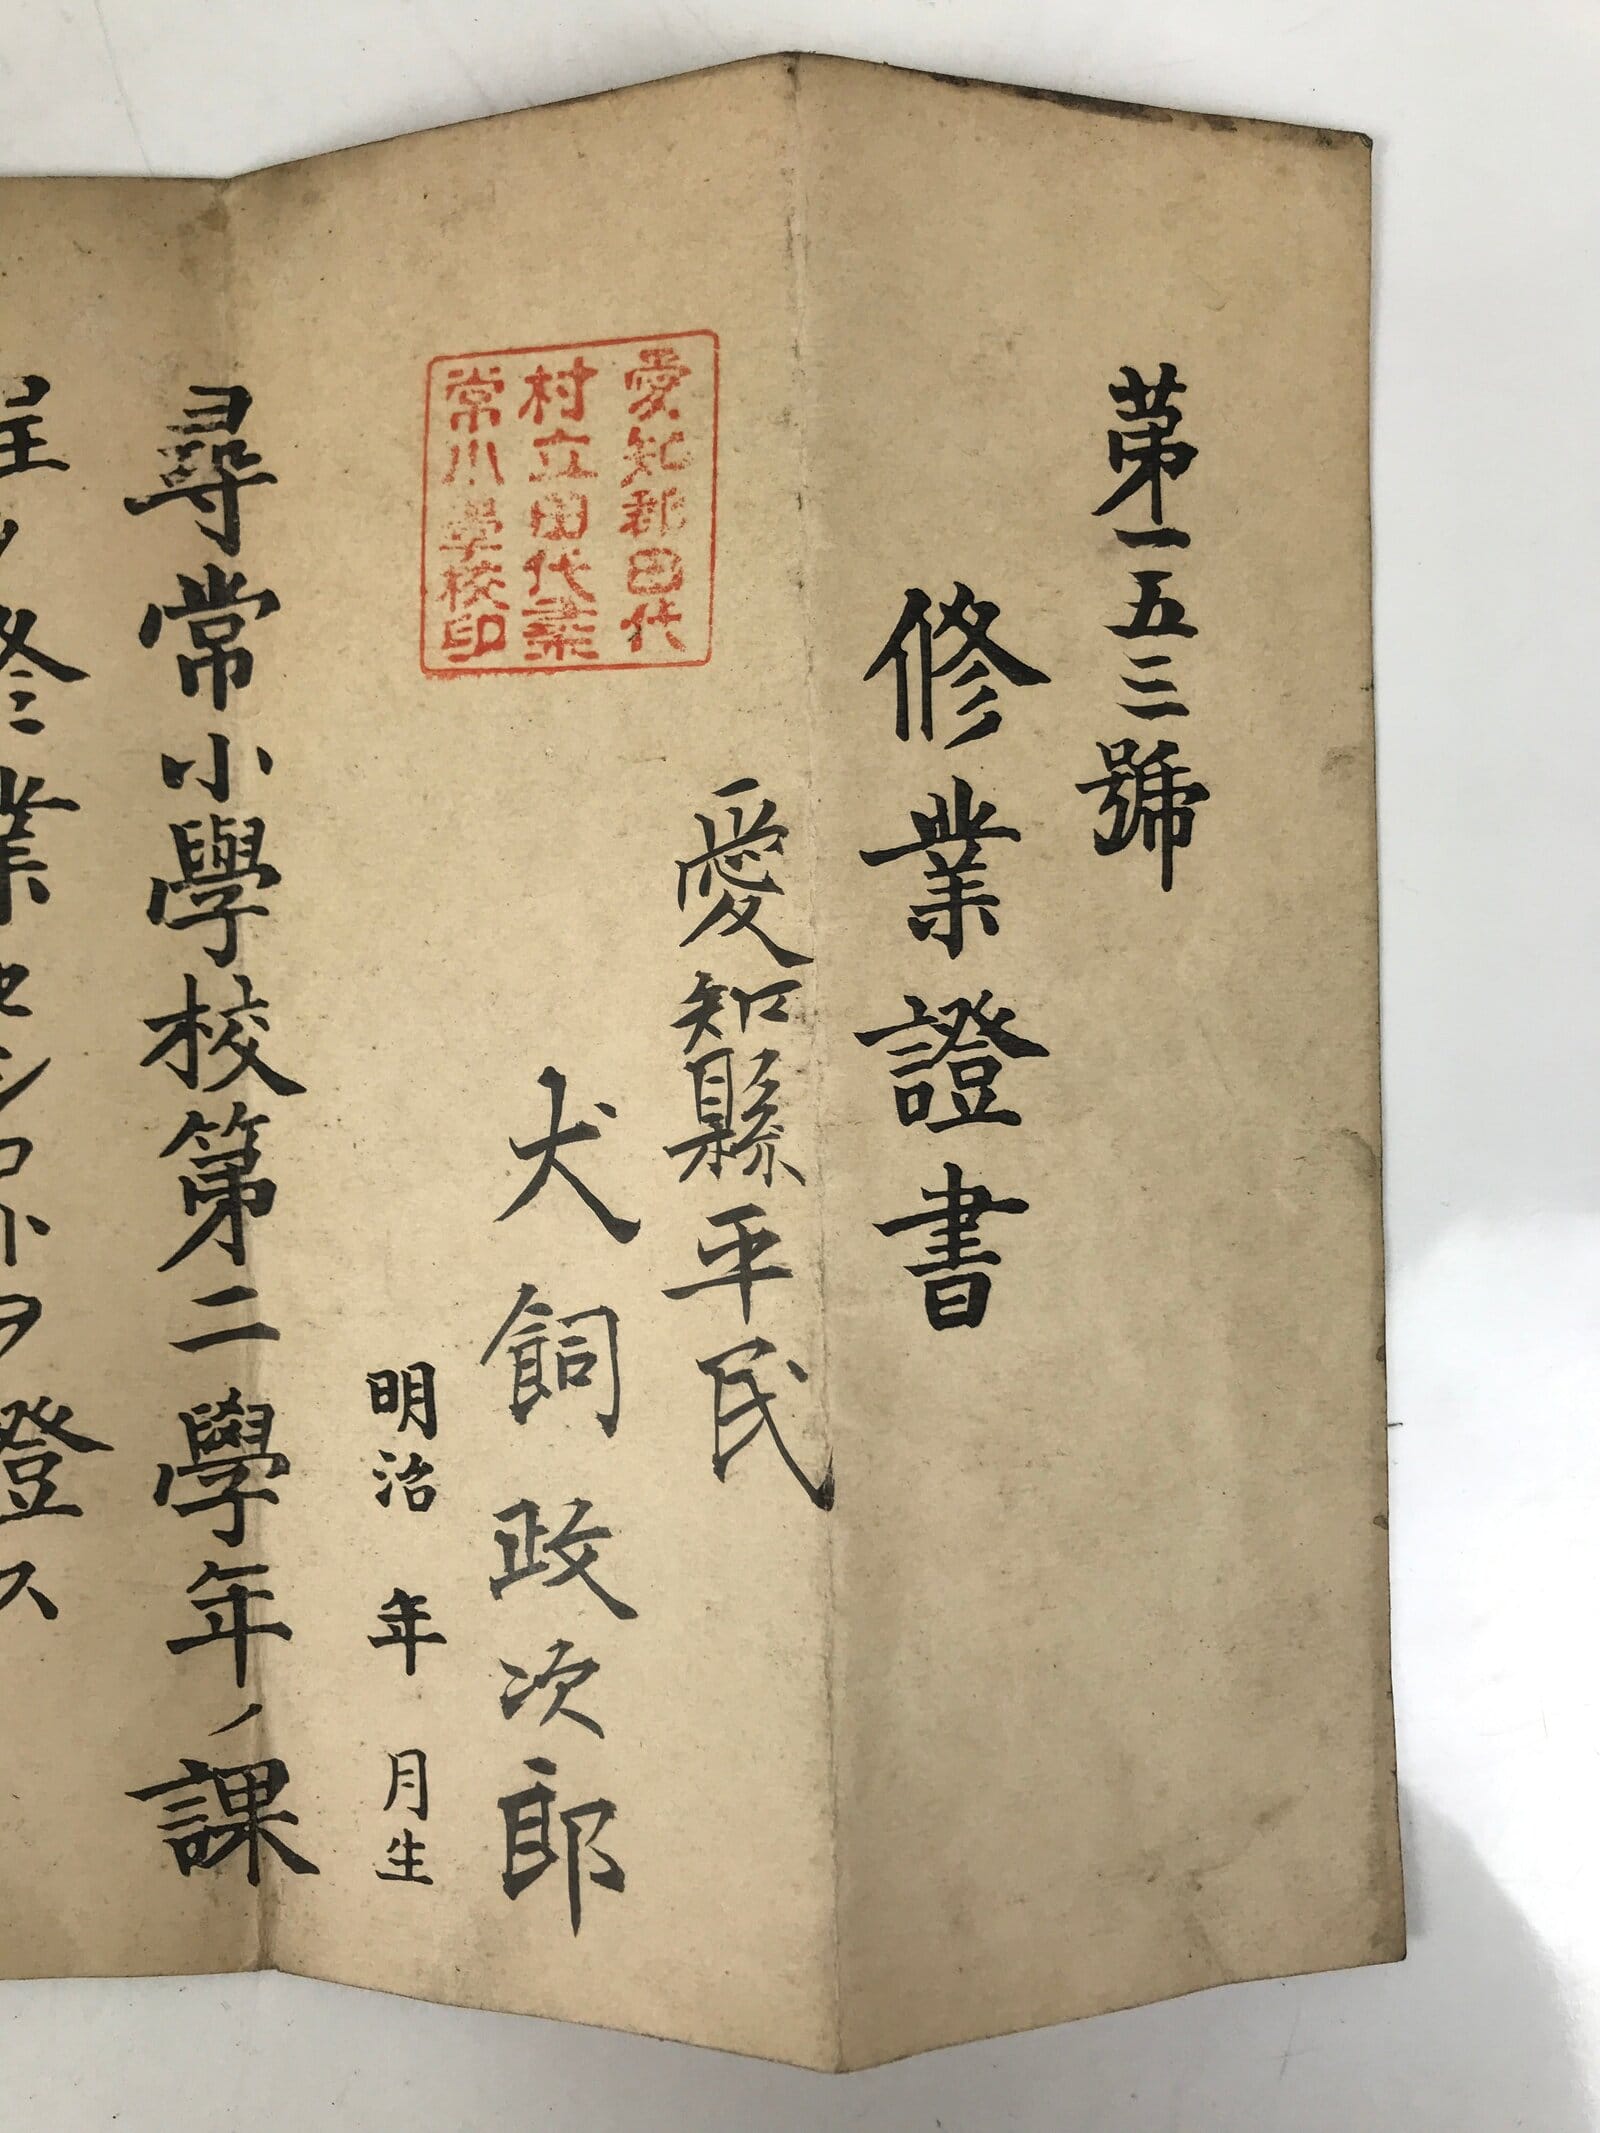 第一五三號
修業證書
愛知縣平民
犬飼政次郎
明治 年 月生
愛知郡田代
村立田代尋
常小學校印
尋常小學校第二學年ノ課
程ノ修業セシコトヲ證ス